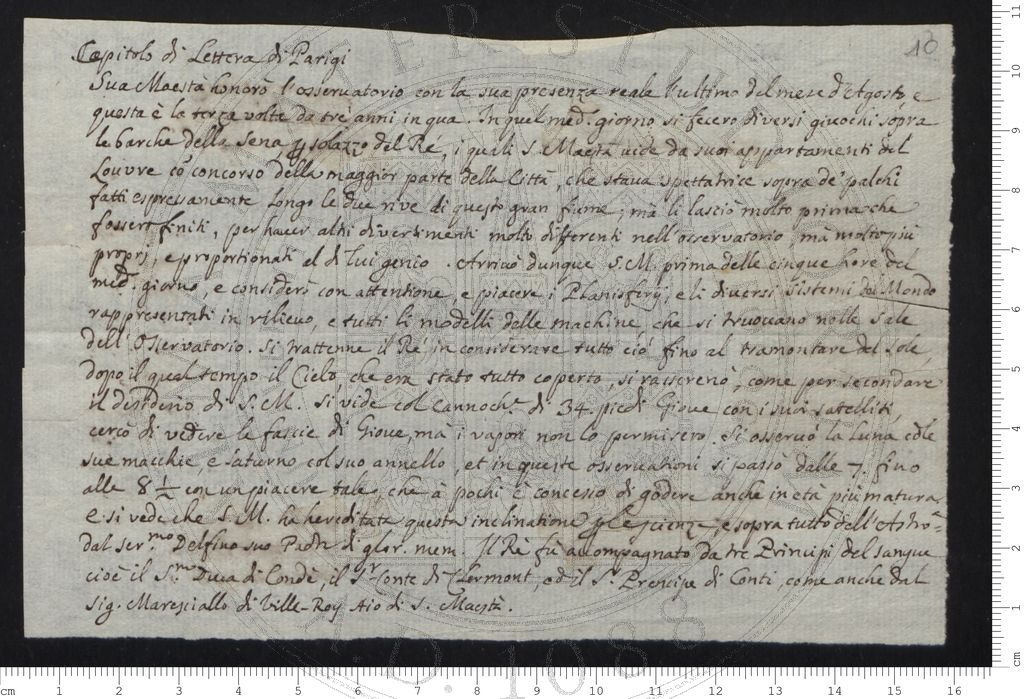 Capitolo di Lettera di Parigi
10
Sua Maestà honorò l'osservatorio con la sua presenza reale l'ultimo del mese d'Agosto, e
questa è la terza volta da trè anni in qua. In quel med.° giorno si fecero diversi giuochi sopra
le barche della Sena p solazzo del Ré, i quali S. Maestà vide da suoi appartamenti del
Louvre cō concorso della maggior parte della Città, che stava spettatrice sopra de' palchi
fatti espressamente longo le due rive di questo gran fiume; mà li lasciò molto prima che
fossero finiti, per haver altri divertimenti molto differenti nell'osservatorio, mà molto più
proprj, e proportionati al di lui genio. Arrivò dunque S. M. prima delle cinque hore del
med.° giorno, e considerò con attentione, e piacere i Planisferij, e li diversi Sistemi del Mondo
rappresentati in rilievo, e tutti li modelli delle machine, che si truovano nelle Sale
dell'Osservatorio. Si trattenne il Ré in considerare tutto ciò fino al tramontare del Sole,
dopo il qual tempo il Cielo, che era stato tutto coperto, si rasserenò, come per secondare
il desiderio di S. M. Si vide col Cannoch.e di 34. piedi Giove con i suoi satelliti,
cercò di vedere le fascie di Giove, mà i vapori non lo permisero. Si osservò la Luna colle
sue macchie, e Saturno col suo annello, et in queste osservationi si passò dalle 7. fino
alle 8 1/2 con un piacere tale, che à pochi è concesso di godere anche in età più matura,
e si vede che S. M. ha hereditata questa inclinatione p le scienze, e sopra tutto dell'Astro=
dal ser.mo Delfino suo Padre di glor. mem. Il Rè fù accompagnato da tre Principi del sangue
cioè il S.r Duca di Condè, il S.r Conte di Clermont, ed il S.r Prencipe di Conti, come anche dal
Sig. Maresciallo di Ville-Roy Aio di S. Maestà.